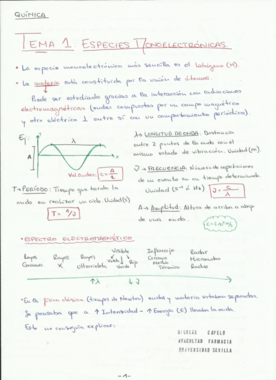 QUÍMICA
TEMA 1 ESPECIES MONOELECTRÓNICAS
• La especie monoelectrónica más sencilla es el hidrógeno (H).
• La materia está constituida por la unión de átomos.
Puede ser estudiada gracias a la interacción con radiaciones
electromagnéticas (ondas compuestas por un campo magnético
y otro eléctrico ⊥ entre sí con un comportamiento periódico)
Ej:
λ
A
λ = LONGITUD DE ONDA: Distancia
entre 2 puntos de la onda con el
mismo estado de vibración. Unidad (m)
ν = FRECUENCIA: Número de repeticiones
de un evento en un tiempo determinado
Unidad (s⁻¹ ó Hz)
T = PERÍODO: Tiempo que tarda la
onda en realizar un ciclo Unidad(s)
A = Amplitud: Altura de arriba a abajo
de una onda.
• ESPECTRO ELECTROMAGNÉTICO
Rayos Rayos Rayos visible Infrarrojo Radar
Gamma X ultravioleta
• En la física clásica (tiempos de Newton) ondas y materia estaban separadas.
Se pensaba que a ↑ Intensidad - ↑ Energía (E) llevaba la onda.
Esto no conseguía explicar:
NICOLAS CAPELO
FACULTAD FARMACIA
UNIVERSIDAD SEVILLA
-1-